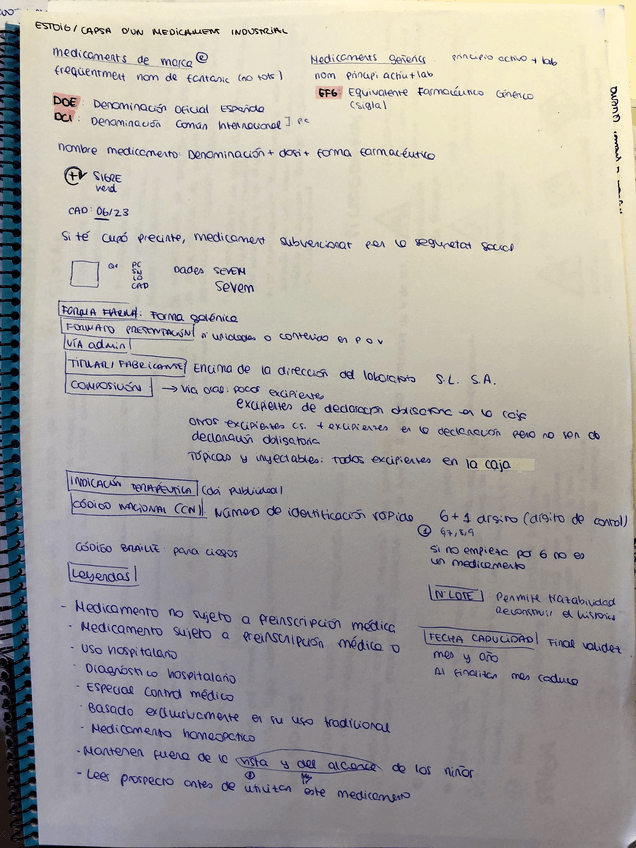 ESTOIG/CAPSA D'UN MEDICAMENT INDUSTRIAL
medicaments de marca ®
freqüentment nom de fantasia (no tots)
Medicaments genèrics principio activo + lab
nom principi actiu + lab
EFG Equivalente Farmacéutico Genérico
(sigla)
DOE: Denominación Oficial Española
DCI: Denominación Común Internacional ] PA
nombre medicamento: Denominación + dosi + forma farmacéutico
SIGRE
verd
CAD: 06/23
Si té cupó precinte, medicament subvencionat per la seguretat social
QR PC
SN
LO
CAD
Dades SEVEM
Sevem
FORMA FARMA: Forma galénica
FORMATO PRESENTACIÓN nº unidades o contenido en P o V
VÍA admin
TITULAR/FABRICANTE Encima de la dirección del laboratorio S.L. S.A.
COMPOSICIÓN → Vía oral: pocos excipientes
excipientes de declaración obligatoria en la caja
otros excipientes c.s. + excipientes en la declaración pero no son de
declaración obligatoria
Tópicas y inyectables: Todos excipientes en la caja
INDICACIÓN TERAPÉUTICA (doi publicidad)
CÓDIGO NACIONAL (CN) Número de identificación rápida 6 + 1 dígito (dígito de control)
6,7,8,9
si no empieza por 6 no es
un medicamento
CÓDIGO BRAILLE para ciegos
Leyendas
Nº LOTE Permite trazabilidad
Reconstruir el histórico
FECHA CADUCIDAD Final validez
mes y año
Al finalitzar mes caduca
- Medicamento no sujeto a preinscripción médica
- Medicamento sujeto a preinscripción médica O
- Uso hospitalario
- Diagnóstico hospitalario
- Especial control médico
- Basado exclusivamente en su uso tradicional
- Medicamento homeopático
- Mantener fuera de la vista y del alcance de los niños
- Leer prospecto antes de utilizar este medicamento